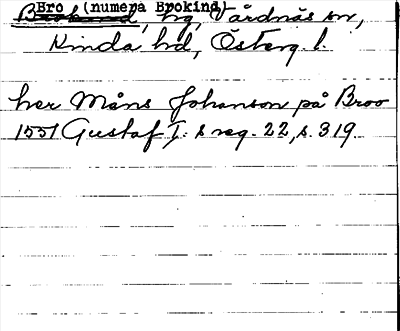 Bro (numera Brokind)
Brokind, hg, Vårdnäs sn,
Kinda hd, Österg. l.
her Måns Johanson på Broo
1551 Gustaf I:s reg. 22, s. 319.